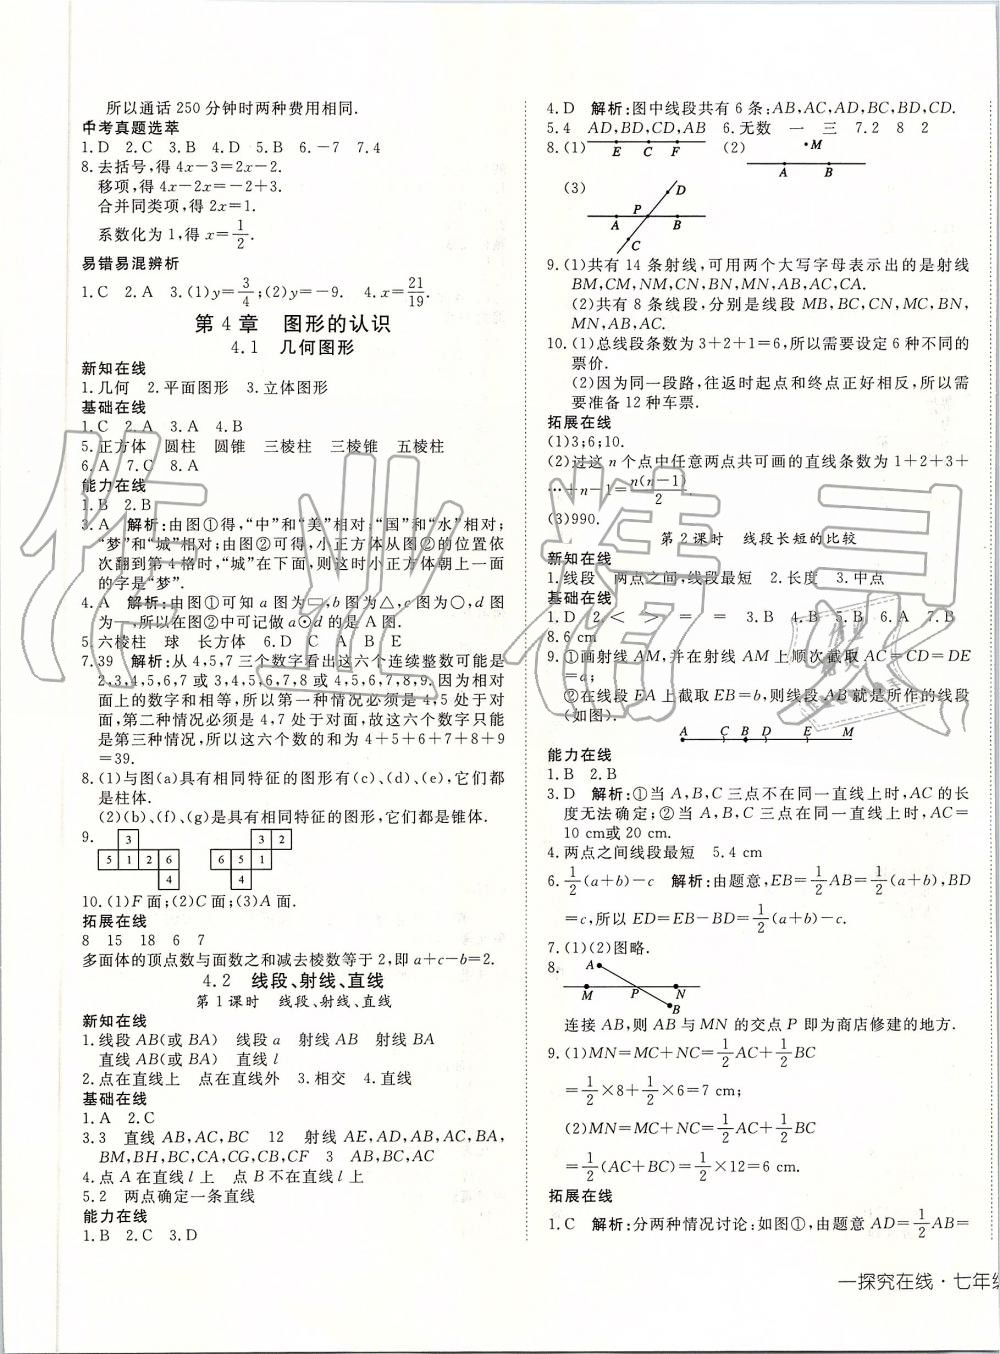 所以通话 250 分钟时两种费用相同.
中考真题选萃
1. D　2. C　3. B　4. D　5. B　6. －7　7. 4
8. 去括号,得 4x－3＝2x－2.
移项,得 4x－2x＝－2＋3.
合并同类项,得 2x＝1.
系数化为 1,得 x＝1/2.
易错易混辨析
1. C　2. A　3. (1)y＝3/4;(2)y＝－9.　4. x＝21/19.
第 4 章　图形的认识
4.1　几何图形
新知在线
1. 几何　2. 平面图形　3. 立体图形
基础在线
1. C　2. A　3. A　4. B
5. 正方体　圆柱　圆锥　三棱柱　三棱锥　五棱柱
6. A　7. C　8. A
能力在线
1. B　2. B
3. A　解析:由图①得,“中”和“美”相对,“国”和“水”相对;
“梦”和“城”相对;由图②可得,小正方体从图②的位置依
次翻到第 4 格时,“城”在下面,则这时小正方体朝上一面
的字是“梦”.
4. A　解析:由图①可知 a 图为▭,b 图为△,c 图为○,d 图
为—,所以在图②中可记做 a⊙d 的是 A 图.
5. 六棱柱　球　长方体　6. D　C　A　B　E
7. 39　解析:从 4,5,7 三个数字看出这六个连续整数可能是
2,3,4,5,6,7 或 3,4,5,6,7,8 或 4,5,6,7,8,9.因为相对
面上的数字和相等,所以第一种情况必须是 4,5 处于对
面,第二种情况必须是 4,7 处于对面,故这六个数字只能
是第三种情况,所以这六个数的和为 4＋5＋6＋7＋8＋9
＝39.
8. (1)与图(a)具有相同特征的图形有(c)、(d)、(e),它们都
是柱体.
(2)(b)、(f)、(g)是具有相同特征的图形,它们都是锥体.
9.
3　3 2
5 1 2 6　6 5 1
4　4
10. (1)F 面;(2)C 面;(3)A 面.
拓展在线
8　15　18　6　7
多面体的顶点数与面数之和减去棱数等于 2,即 a＋c－b＝2.
4.2　线段、射线、直线
第 1 课时　线段、射线、直线
新知在线
1. 线段 AB(或 BA)　线段 a　射线 AB　射线 BA
直线 AB(或 BA)　直线 l
2. 点在直线上　点在直线外　3. 相交　4. 直线
基础在线
1. A　2. C
3. 3　直线 AB,AC,BC　12　射线 AE,AD,AB,AC,BA,
BM,BH,BC,CA,CG,CB,CF　3　AB,AC,BC
4. 点 A 在直线 l 上　点 B 不在直线 l 上
5. 2　两点确定一条直线
能力在线
1. B　2. C　3. D
4. D　解析:图中线段共有 6 条:AB,AC,AD,BC,BD,CD.
5. 4　AD,BD,CD,AB　6. 无数　一　三　7. 2　8　2
8. (1)　E　C　F　(2)　M
A　B
(3)　D
P
A　B
C
9. (1)共有 14 条射线,可用两个大写字母表示出的是射线
BM,CM,NM,CN,BN,MN,AB,AC,CA.
(2)共有 8 条线段,分别是线段 MB,BC,CN,MC,BN,
MN,AB,AC.
10. (1)总线段条数为 3＋2＋1＝6,所以需要设定 6 种不同的
票价.
(2)因为同一段路,往返时起点和终点正好相反,所以需
要准备 12 种车票.
拓展在线
(1)3;6;10.
(2)过这 n 个点中任意两点共可画的直线条数为 1＋2＋3＋
…＋n－1＝n(n－1)/2.
(3)990.
第 2 课时　线段长短的比较
新知在线
1. 线段　两点之间,线段最短　2. 长度　3. 中点
基础在线
1. D　2. ＜　＞　＝　＝　3. B　4. B　5. B　6. A　7. B
8. 6 cm
9. ①画射线 AM,并在射线 AM 上顺次截取 AC＝CD＝DE
＝a;
②在线段 EA 上截取 EB＝b,则线段 AB 就是所作的线段
(如图).
A　C　B　D　E　M
能力在线
1. B　2. B
3. D　解析:①当 A,B,C 三点不在同一直线上时,AC 的长
度无法确定;②当 A,B,C 三点在同一直线上时,AC＝
10 cm或 20 cm.
4. 两点之间线段最短　5. 4 cm
6. 1/2(a＋b)－c　解析:由题意,EB＝1/2AB＝1/2(a＋b),BD
＝c,所以 ED＝EB－BD＝1/2(a＋b)－c.
7. (1)(2)图略.
8.　A
M　P　N
B
连接 AB,则 AB 与 MN 的交点 P 即为商店修建的地方.
9. (1)MN＝MC＋NC＝1/2AC＋1/2BC
＝1/2×8＋1/2×6＝7 cm;
(2)MN＝MC＋NC＝1/2AC＋1/2BC
＝1/2(AC＋BC)＝1/2×12＝6 cm.
拓展在线
1. C　解析:分两种情况讨论:如图①,由题意 AD＝1/2AB＝
—探究在线·七年级
作业精灵